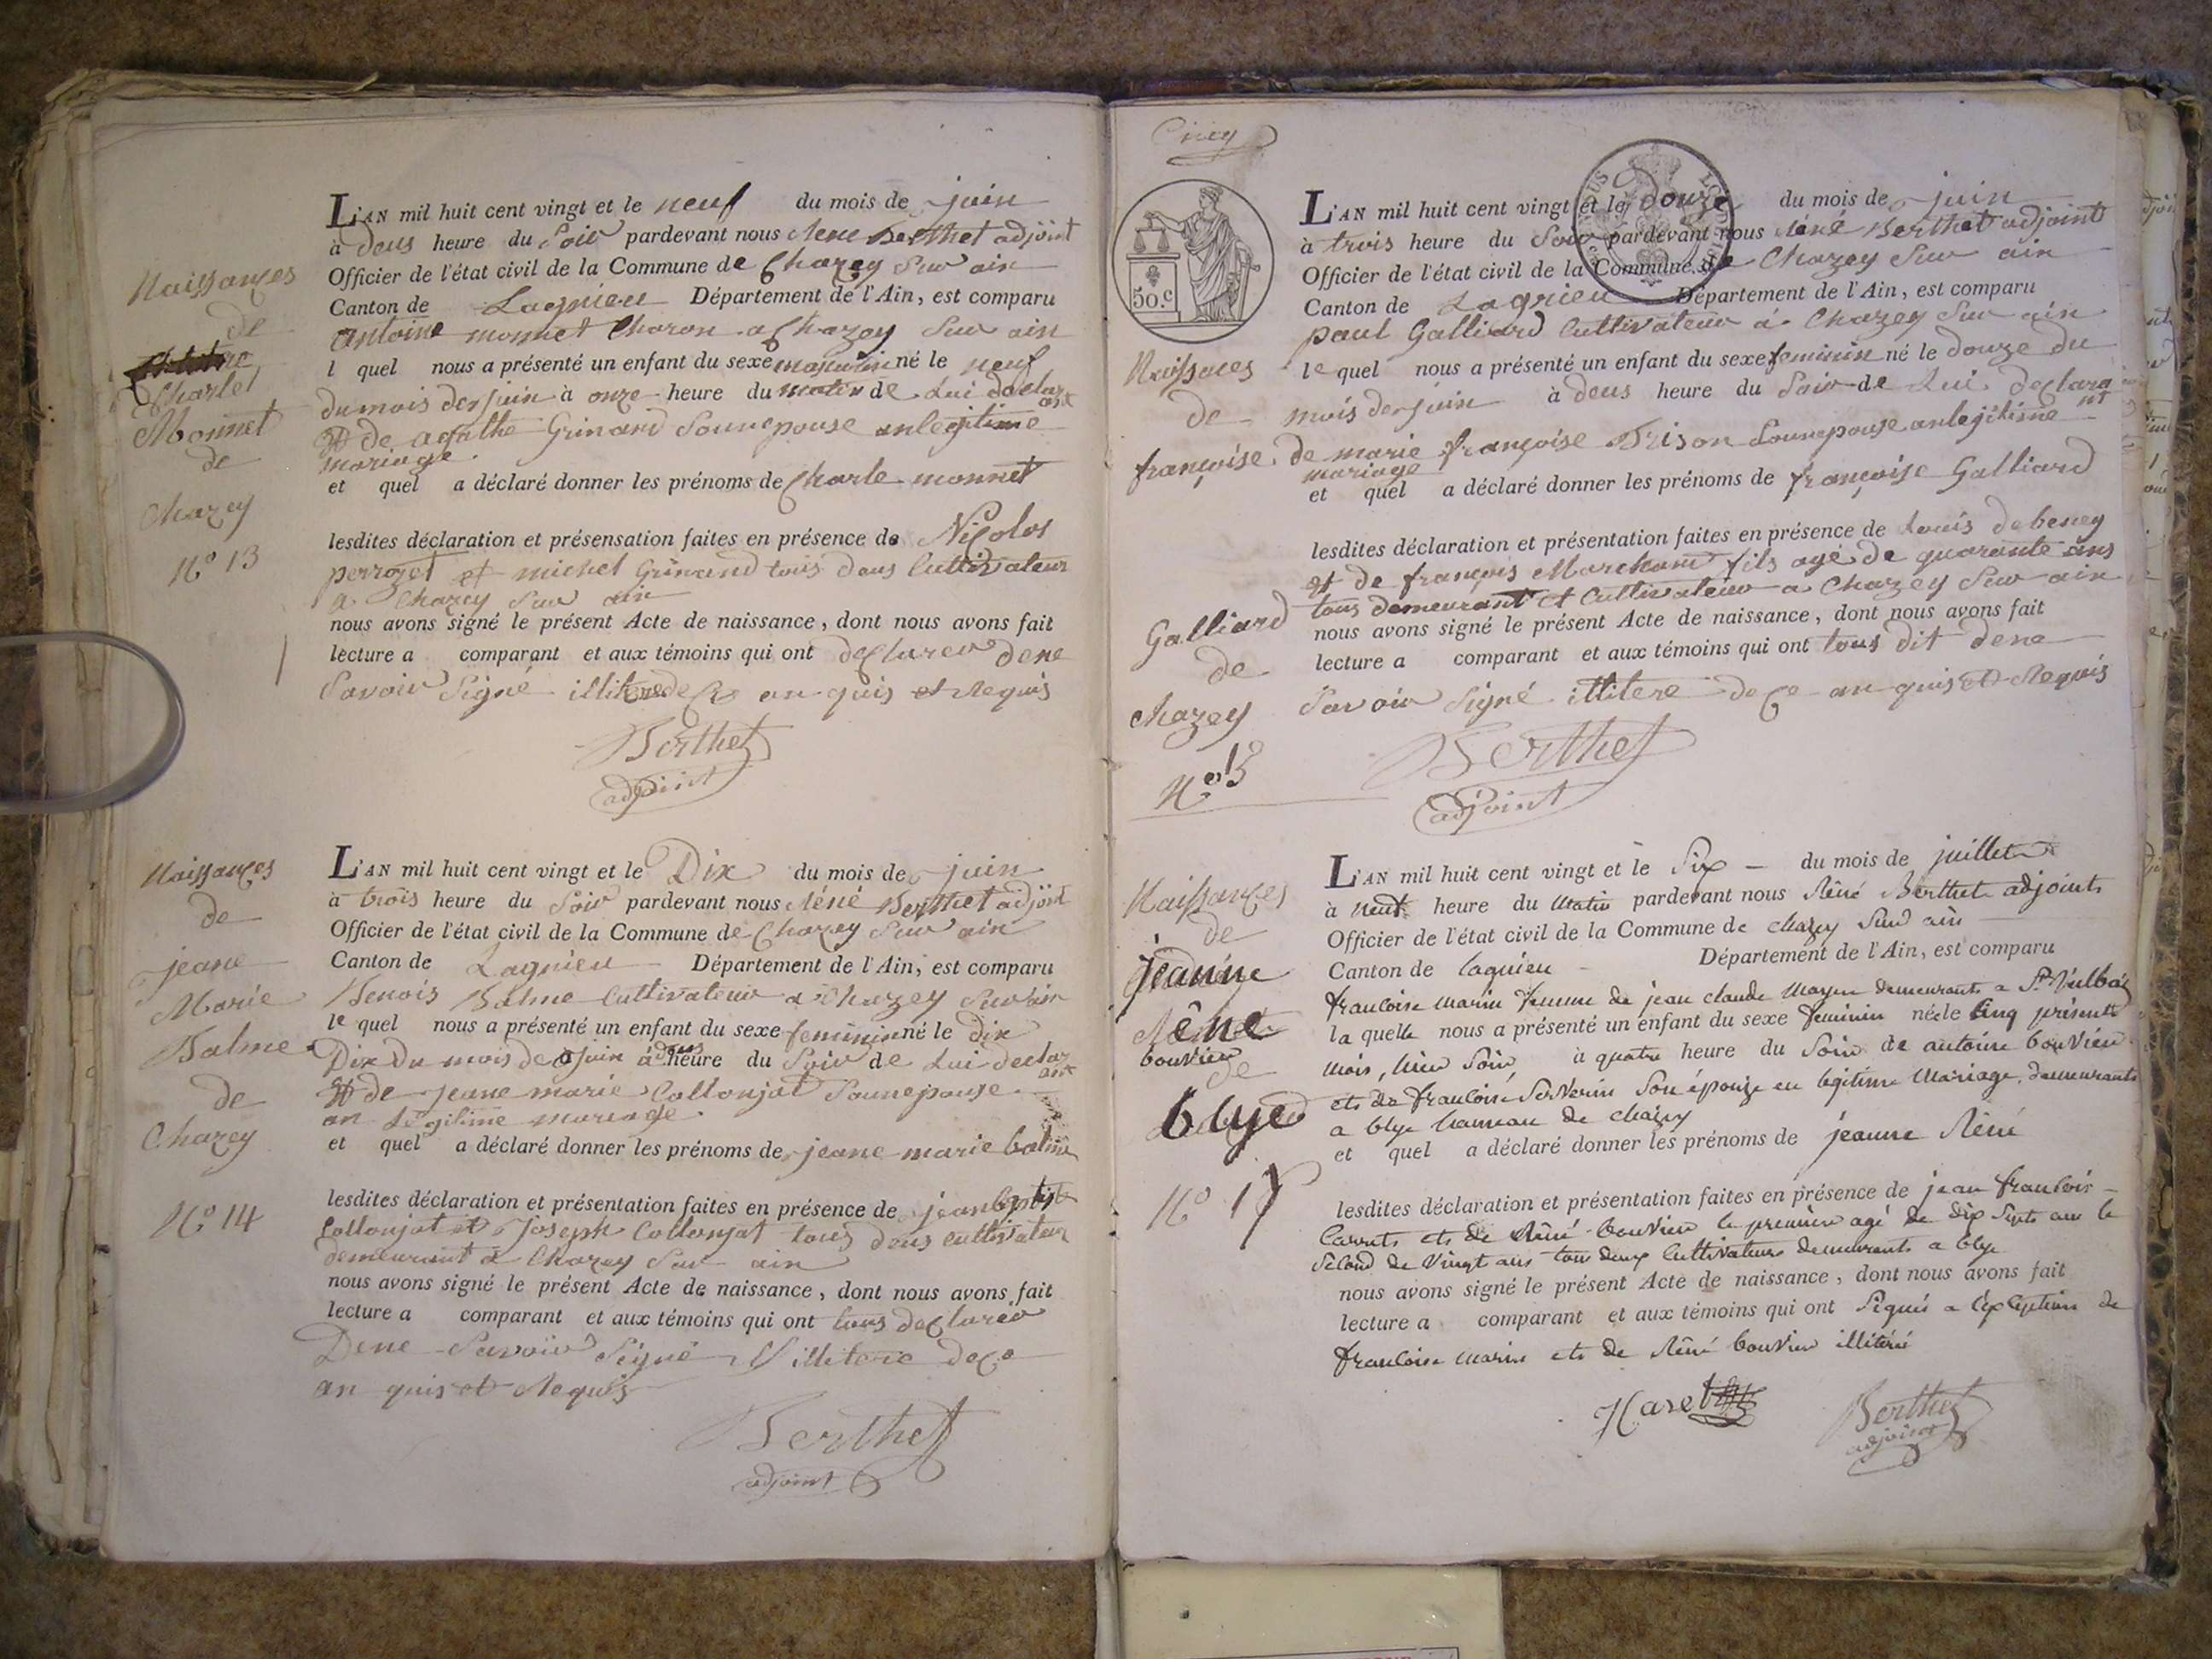 Naissances
de
Charlet
Monnet
de
Chazey
N.o 13
L'AN mil huit cent vingt et le neuf du mois de juin
à deus heure du Soir pardevant nous Réné Berthet adjoint
Officier de l'état civil de la Commune de Chazey Sur ain
Canton de Lagnieu Département de l'Ain, est comparu
antoine monnet Charon a Chazey Sur ain
l quel nous a présenté un enfant du sexe masculin né le neuf
du mois de juin à onze heure du matin de Lui declarant
et de agathe Grinand Son epouse an legitime
mariage.
et quel a déclaré donner les prénoms de Charle monnet
lesdites déclaration et présensation faites en présence de Nicolos
perrozet et michel Grinand tous deus Cultivateur
a Chazey Sur ain
nous avons signé le présent Acte de naissance, dont nous avons fait
lecture a comparant et aux témoins qui ont declarer de ne
Savoir Signé illitere de ce an quis et Requis
Berthet
adjoint
Naissances
de
jeane
Marie
Balme
de
Chazey
N.o 14
L'AN mil huit cent vingt et le Dix du mois de juin
à trois heure du Soir pardevant nous Réné Berthet adjoint
Officier de l'état civil de la Commune de Chazey Sur ain
Canton de Lagnieu Département de l'Ain, est comparu
Benois Balme Cultivateur a Chazey Sur ain
le quel nous a présenté un enfant du sexe feminin né le dix
Dix du mois de juin à deus heure du Soir de Lui declarant
et de jeane marie Collonjat Son epouse
an Légitime mariage.
et quel a déclaré donner les prénoms de jeane marie balme
lesdites déclaration et présentation faites en présence de jean baptiste
Collonjat et Joseph Collonjat tous deus cultivateur
demeurant a Chazey Sur ain
nous avons signé le présent Acte de naissance, dont nous avons fait
lecture a comparant et aux témoins qui ont tous declarer
De ne Savoir Signé illitere de ce
an quis et Requis
Berthet
adjoint
50.c
Naissances
de
françoise
Galliard
de
Chazey
N.o 15
L'AN mil huit cent vingt et le douze du mois de juin
à trois heure du Soir pardevant nous Réné Berthet adjoint
Officier de l'état civil de la Commune de Chazey Sur ain
Canton de Lagnieu Département de l'Ain, est comparu
paul Galliard Cultivateur a Chazey Sur ain
le quel nous a présenté un enfant du sexe feminin né le douze du
mois de juin à deus heure du Soir de Lui declarant
de marie françoise Brison Son epouse an legitime
mariage
et quel a déclaré donner les prénoms de françoise Galliard
lesdites déclaration et présentation faites en présence de Louis debeney
et de françois Marchand fils agé de quarante ans
tous demeurant et Cultivateur a Chazey Sur ain
nous avons signé le présent Acte de naissance, dont nous avons fait
lecture a comparant et aux témoins qui ont tous dit de ne
Savoir Signé illitere de ce an quis et Requis
Berthet
adjoint
Naissances
de
jeanne
Réne
bouvier
de
blye
N.o
L'AN mil huit cent vingt et le Six du mois de juillet
à neuf heure du matin pardevant nous Réné Berthet adjoints
Officier de l'état civil de la Commune de chazey Sur ain
Canton de lagnieu Département de l'Ain, est comparu
francoise marin femme de jean claude mayen demeurants a St. Vulbaz
la quelle nous a présenté un enfant du sexe feminin née le cinq présent
mois, hier Soir, à quatre heure du Soir de antoine bouvier
ets de francoise Serverin Son épouze en legitime mariage, demeurants
a blye hameau de chazey
et quel a déclaré donner les prénoms de jeanne Réné
lesdites déclaration et présentation faites en présence de jean francois
Carrets ets de Réné bouvier le premier agé de dix Septs ans le
Second de vingt ans tous deux Cultivateurs demeurants a blye
nous avons signé le présent Acte de naissance, dont nous avons fait
lecture a comparant et aux témoins qui ont Signés a l'exception de
francoise marin ets de Réné bouvier illitéré
Berthet
adjoint